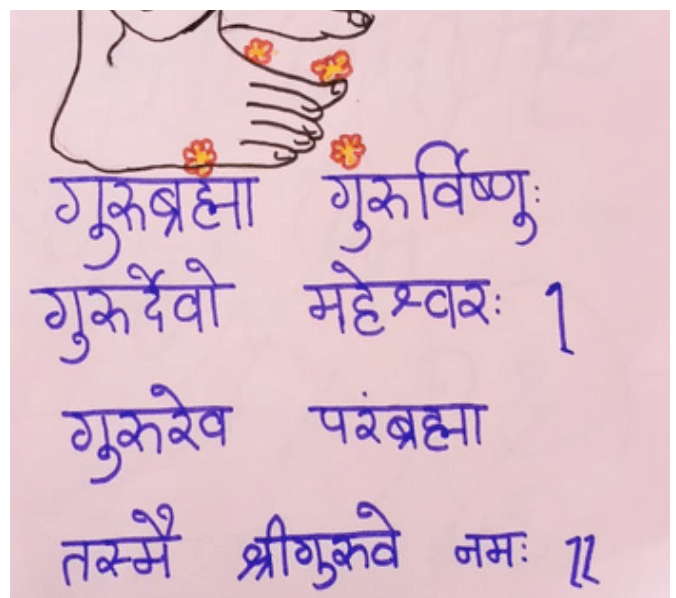 गुरुब्रह्मा गुरुर्विष्णुः
गुरुर्देवो महेश्वरः ।
गुरुरेव परंब्रह्मा
तस्मै श्रीगुरुवे नमः ॥